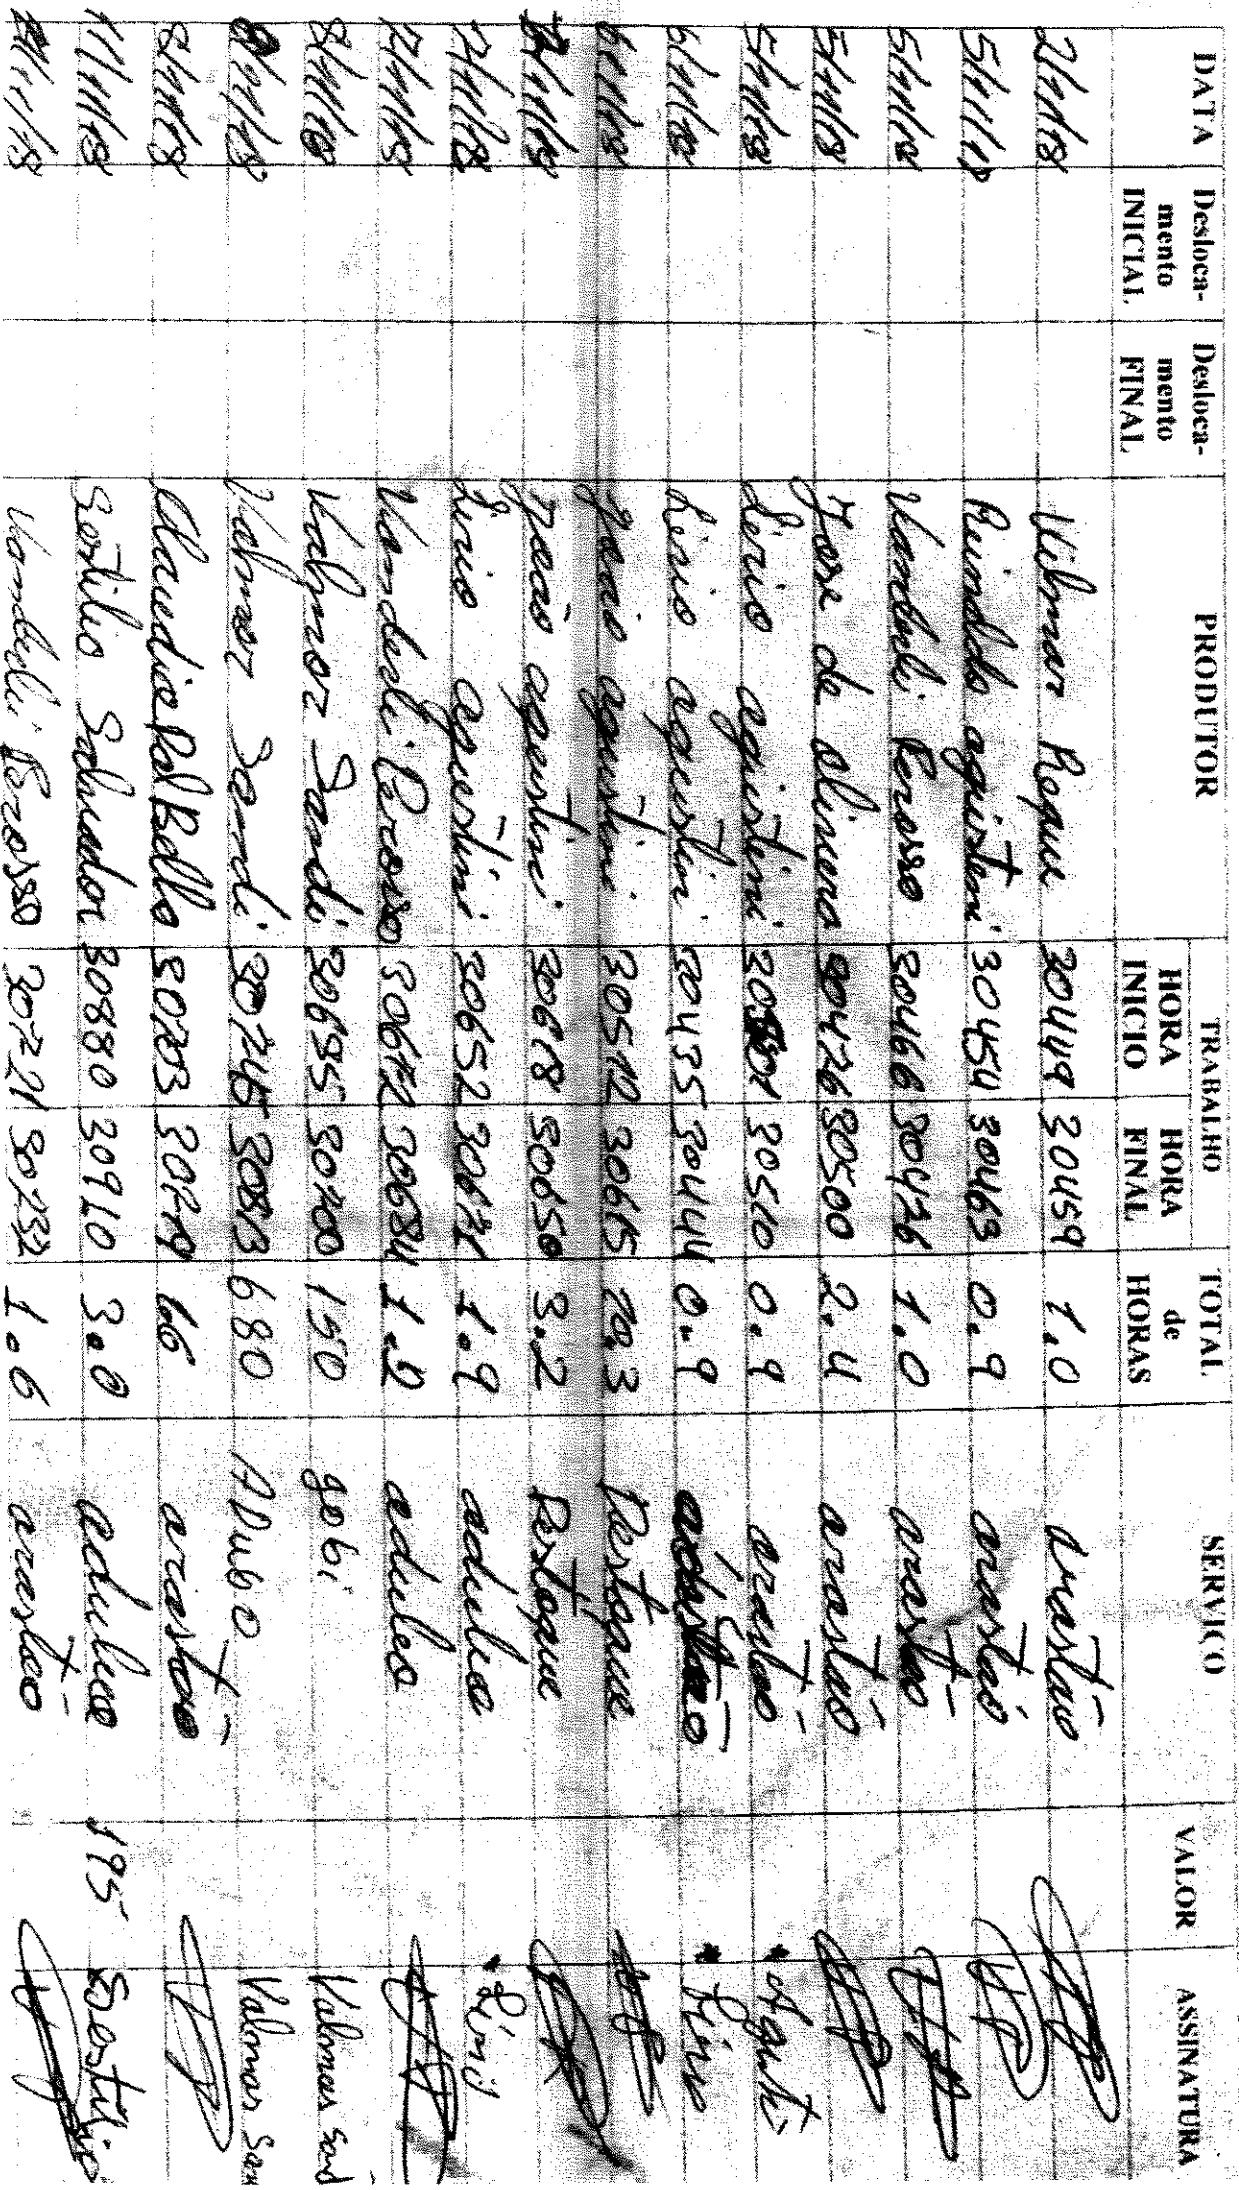 DATA Desloca-mento INICIAL Desloca-mento FINAL PRODUTOR TRABALHO HORA INICIO HORA FINAL TOTAL de HORAS SERVIÇO VALOR ASSINATURA
2/11/18 Vilmar Roque 30449 30459 1.0 arastão
5/11/18 agustini 30454 30463 0.9 arastão
5/11/18 Vanderli Perosso 30466 30476 1.0 arastão
5/11/18 Jose de olivera 30476 30500 2.4 arastão
5/11/18 Lirio agustini 30510 0.9 arastão
6/11/18 Lirio agustini 30435 30444 0.9
6/11/18 João agustini 30512 30615 10.3 Destoque
7/11/18 João agustini 30618 30650 3.2 Destoque
7/11/18 Lirio agustini 30652 30671 1.9 aduleo Lirio
7/11/18 Vanderli Perosso 30672 30684 1.2 aduleo
8/11/18 Valmor Sandi 30685 30700 150 gobi Valmor Sand
8/11/18 Valmor Sandi 30745 30813 680 ADubo Valmor San
8/11/18 Claudio Dal Bello 30703 30719 66 arastão
11/11/18 Sertilio Salvador 30880 30910 3.0 aduleo 195 Sertilio
11/11/18 Vanderli Perosso 30721 30732 1.6 arastão